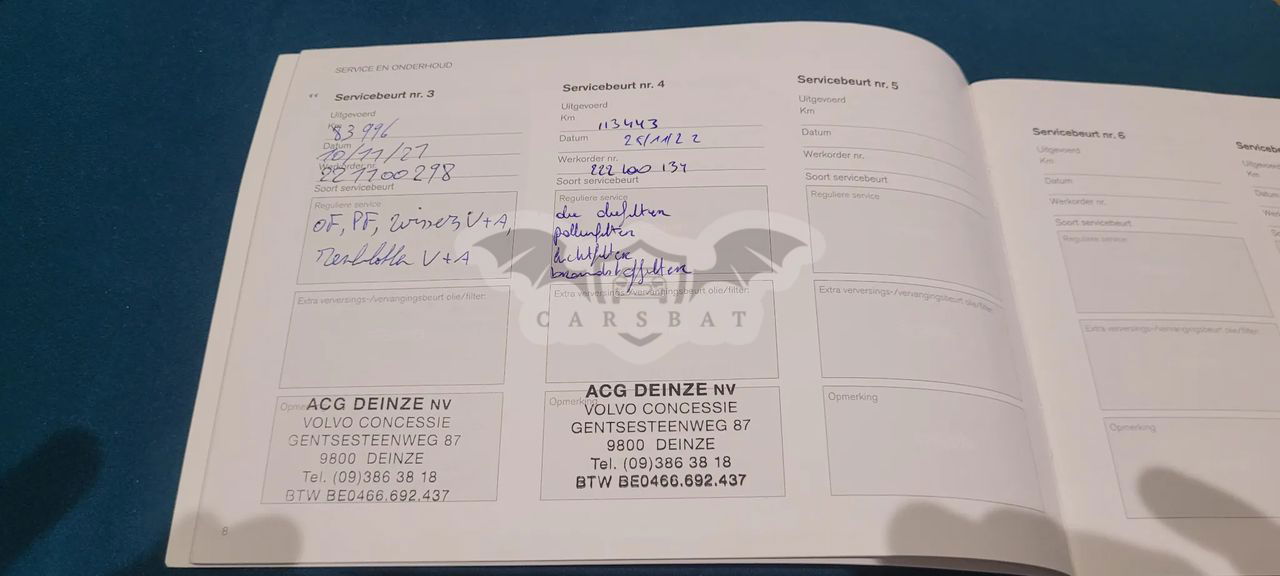 SERVICE EN ONDERHOUD
‹‹ Servicebeurt nr. 3
Uitgevoerd
Km 83 996
Datum 10/11/21
Werkorder nr. 221100298
Soort servicebeurt
Reguliere service
OF, PF, wissers V+A,
V+A
Extra verversings-/vervangingsbeurt olie/filter:
Opmerking
ACG DEINZE NV
VOLVO CONCESSIE
GENTSESTEENWEG 87
9800 DEINZE
Tel. (09)386 38 18
BTW BE0466.692.437
8
Servicebeurt nr. 4
Uitgevoerd
Km 113443
Datum 25/11/22
Werkorder nr. 222 100 134
Soort servicebeurt
Reguliere service
pollenfilter
luchtfilter
brandstoffilter
Extra verversings-/vervangingsbeurt olie/filter:
Opmerking
ACG DEINZE NV
VOLVO CONCESSIE
GENTSESTEENWEG 87
9800 DEINZE
Tel. (09)386 38 18
BTW BE0466.692.437
CARSBAT
Servicebeurt nr. 5
Uitgevoerd
Km
Datum
Werkorder nr.
Soort servicebeurt
Reguliere service
Extra verversings-/vervangingsbeurt olie/filter:
Opmerking
Servicebeurt nr. 6
Uitgevoerd
Km
Datum
Werkorder nr.
Soort servicebeurt
Reguliere service
Extra verversings-/vervangingsbeurt olie/filter:
Opmerking
Km